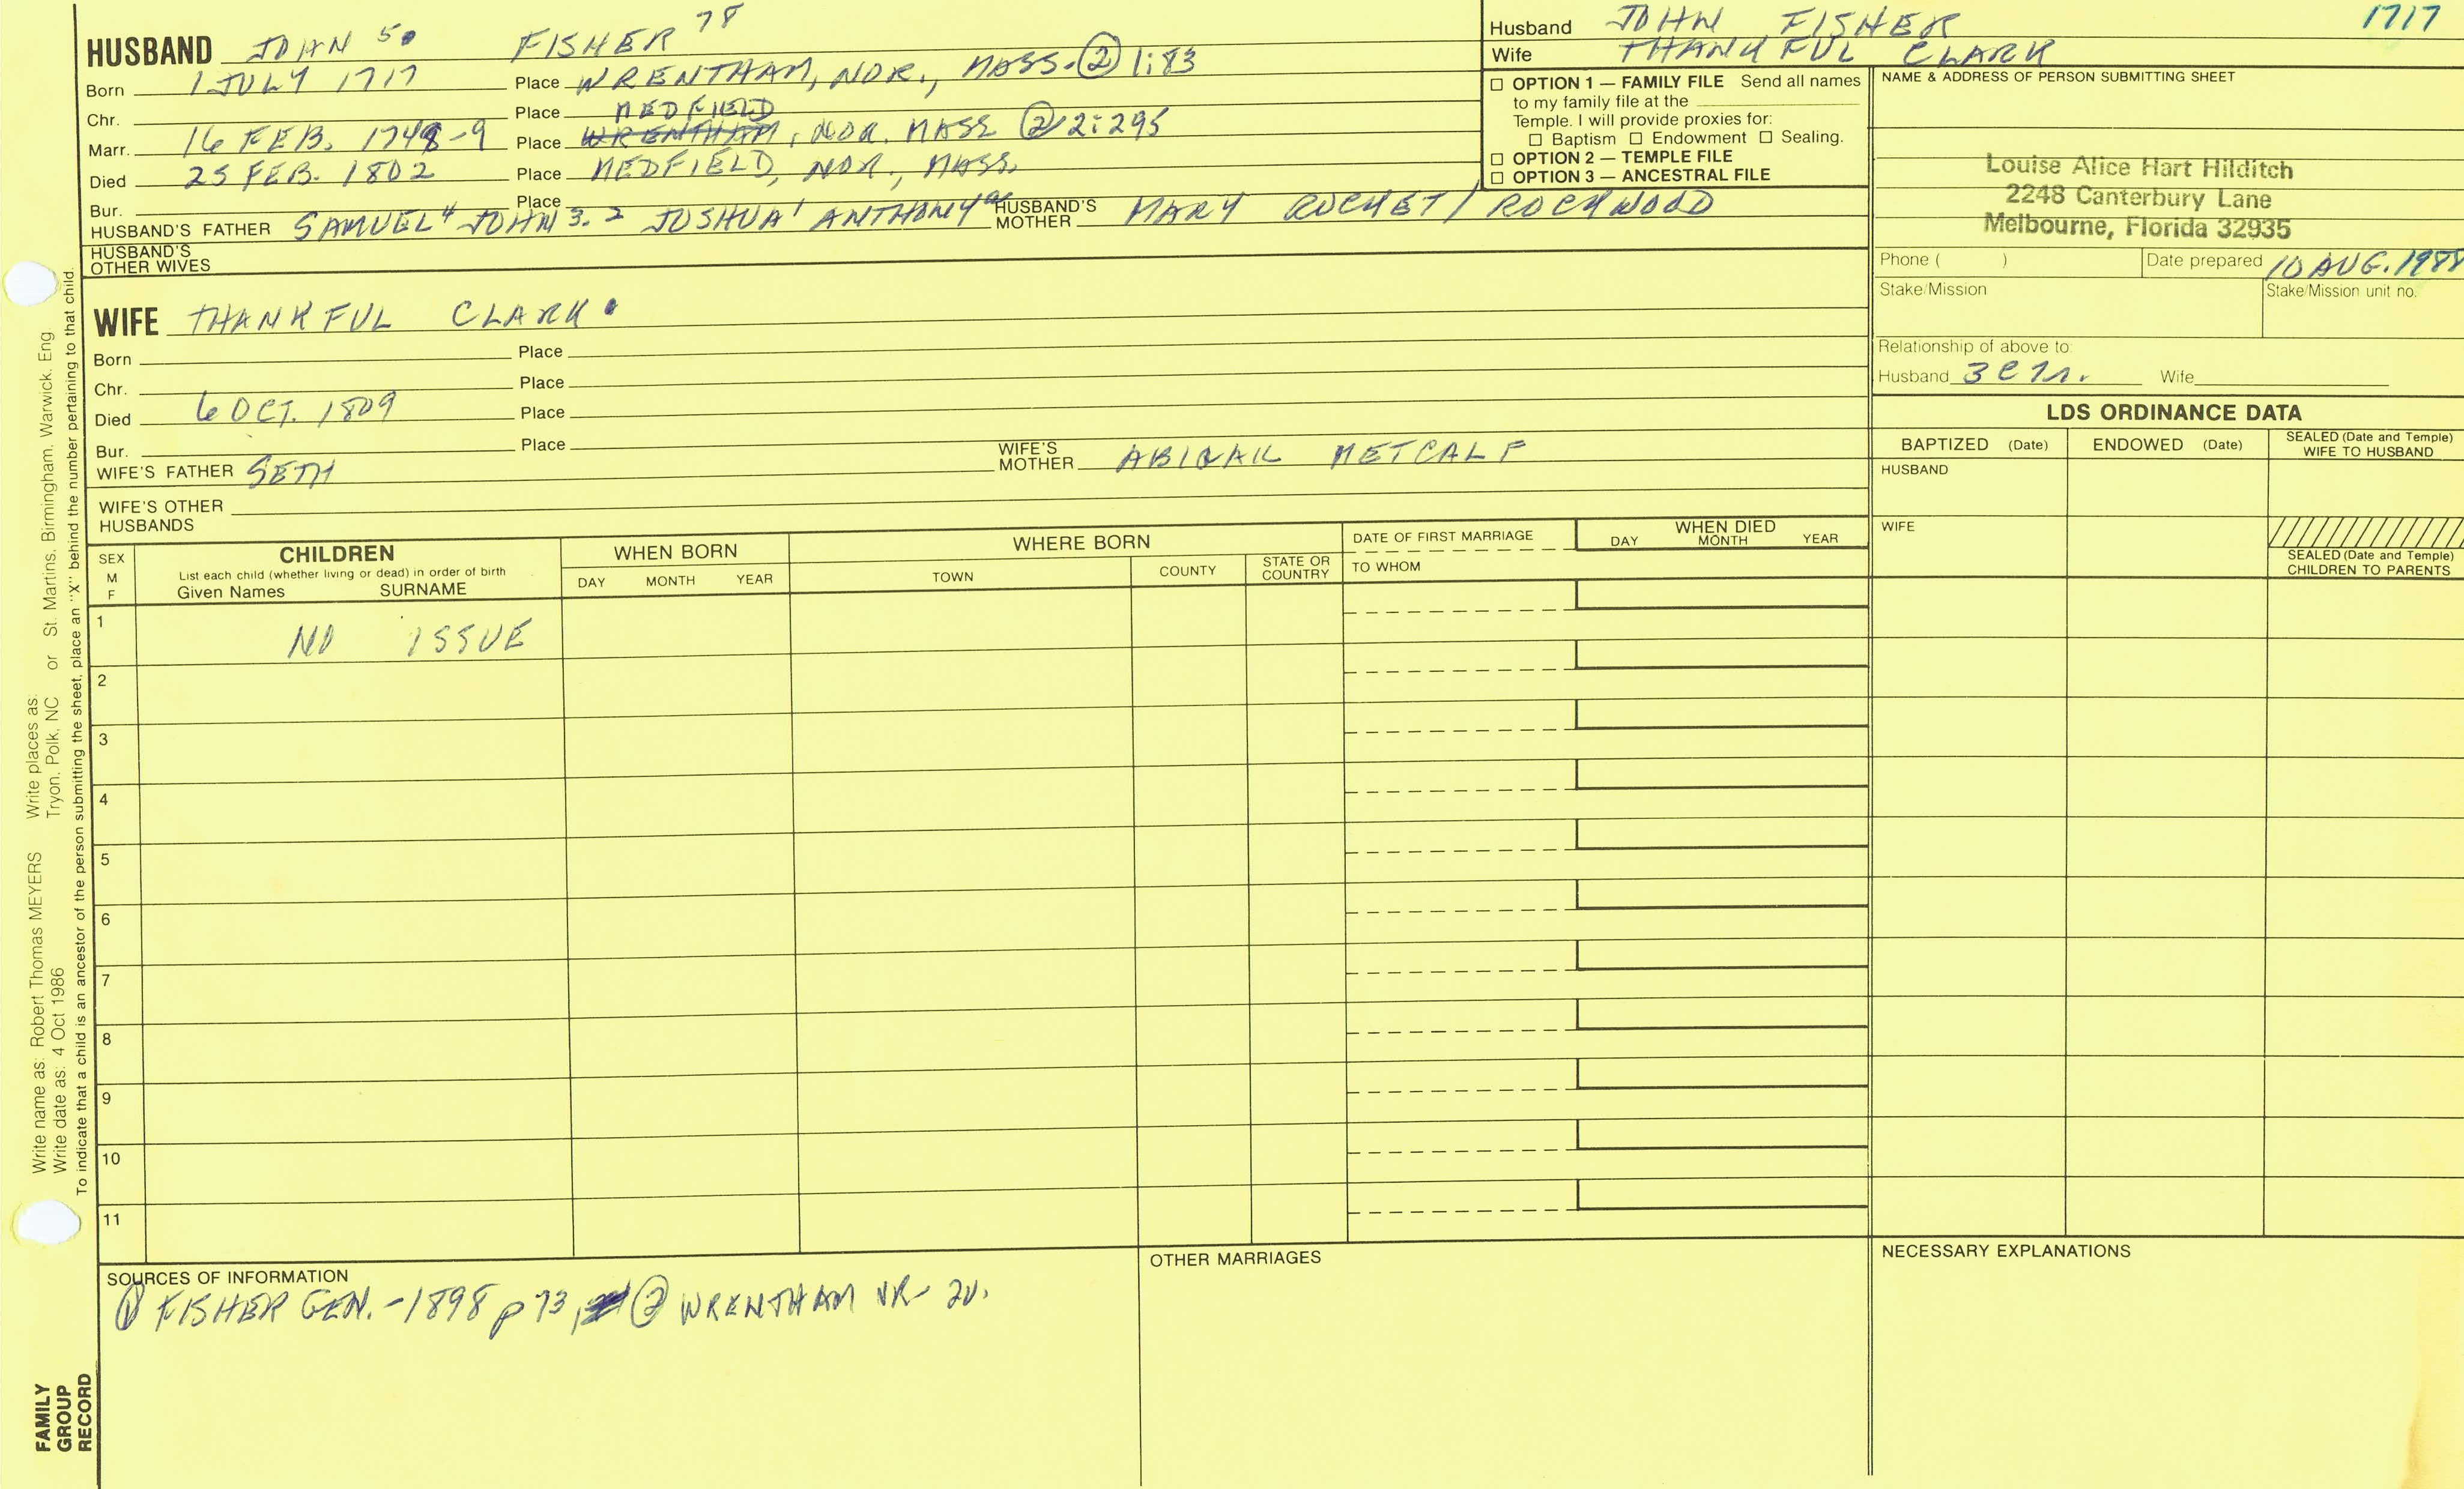 HUSBAND JOHN 5. FISHER 78
Born 1 JULY 1717 Place WRENTHAM, NOR., MASS. ② 1:83
Chr. Place MEDFIELD
Marr. 16 FEB. 1748-9 Place WRENTHAM, NOR. MASS ② 2:295
Died 25 FEB. 1802 Place MEDFIELD, NOR., MASS.
Bur. Place
HUSBAND'S FATHER SAMUEL 4 JOHN 3. 2 JOSHUA 1 ANTHONY HUSBAND'S MOTHER MARY ROCKET/ROCKWOOD
HUSBAND'S OTHER WIVES
Husband JOHN FISHER 1717
Wife THANKFUL CLARK
☐ OPTION 1 — FAMILY FILE Send all names
to my family file at the
Temple. I will provide proxies for:
☐ Baptism ☐ Endowment ☐ Sealing.
☐ OPTION 2 — TEMPLE FILE
☐ OPTION 3 — ANCESTRAL FILE
NAME & ADDRESS OF PERSON SUBMITTING SHEET
Louise Alice Hart Hilditch
2248 Canterbury Lane
Melbourne, Florida 32935
Phone ( ) Date prepared 10 AUG. 1988
Stake/Mission Stake/Mission unit no.
Relationship of above to:
Husband Wife
WIFE THANKFUL CLARK.
Born Place
Chr. Place
Died 6 OCT. 1809 Place
Bur. Place
WIFE'S FATHER SETH WIFE'S MOTHER ABIGAIL METCALF
WIFE'S OTHER HUSBANDS
LDS ORDINANCE DATA
BAPTIZED (Date) ENDOWED (Date) SEALED (Date and Temple) WIFE TO HUSBAND
HUSBAND
WIFE
SEALED (Date and Temple)
CHILDREN TO PARENTS
SEX M F
CHILDREN
List each child (whether living or dead) in order of birth
Given Names SURNAME
WHEN BORN
DAY MONTH YEAR
WHERE BORN
TOWN COUNTY STATE OR COUNTRY
DATE OF FIRST MARRIAGE
TO WHOM
WHEN DIED
DAY MONTH YEAR
1 NO ISSUE
2
3
4
5
6
7
8
9
10
11
SOURCES OF INFORMATION
① FISHER GEN.-1898 p 73, ② WRENTHAM VR- 2V.
OTHER MARRIAGES
NECESSARY EXPLANATIONS
Write name as: Robert Thomas MEYERS Write places as:
Write date as: 4 Oct 1986 Tryon, Polk, NC or St. Martins, Birmingham, Warwick, Eng
To indicate that a child is an ancestor of the person submitting the sheet, place an "X" behind the number pertaining to that child.
FAMILY
GROUP
RECORD